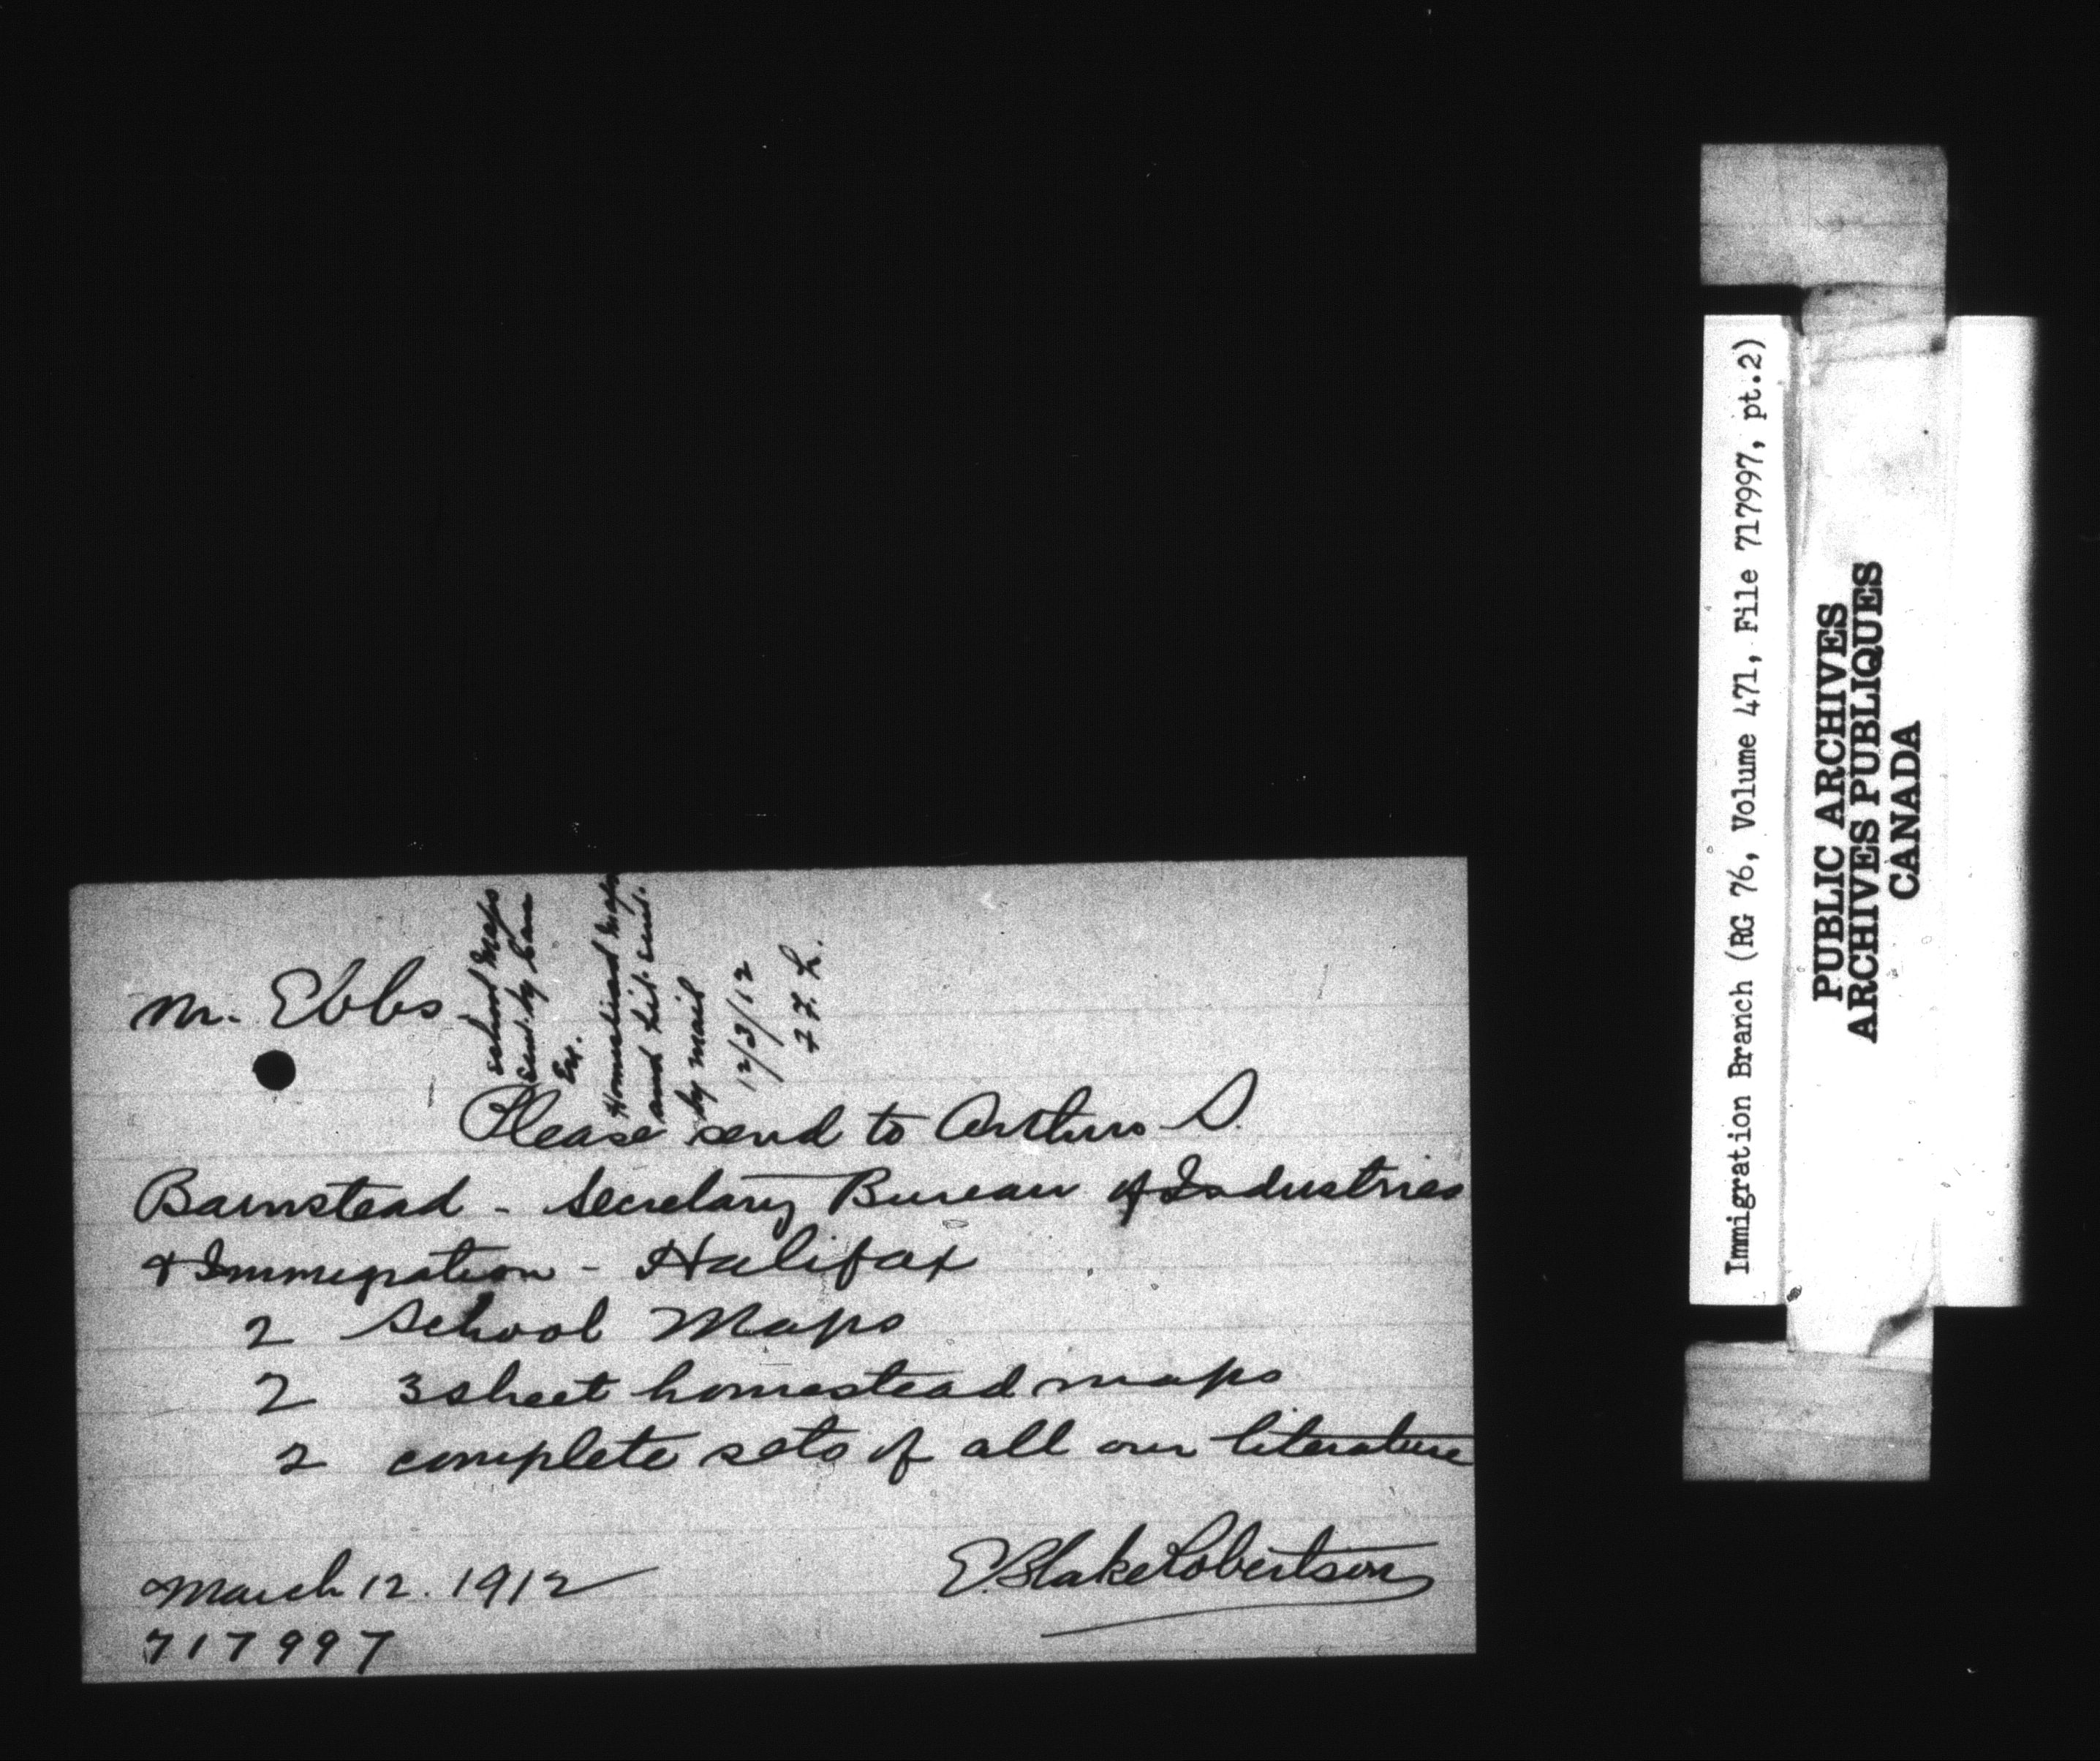 Mr. Ebbs
School Maps
sent by Can
Ex.
Homestead Maps
and Lit. sent
by mail
12/3/12
F. F. L.
Please send to Arthur S.
Barnstead - Secretary Bureau of Industries
& Immigration - Halifax
2 School Maps
2 3 sheet homestead maps
2 complete sets of all our literature
E. Blake Robertson
March 12. 1912
717997
Immigration Branch (RG 76, Volume 471, File 717997, pt.2)
PUBLIC ARCHIVES
ARCHIVES PUBLIQUES
CANADA